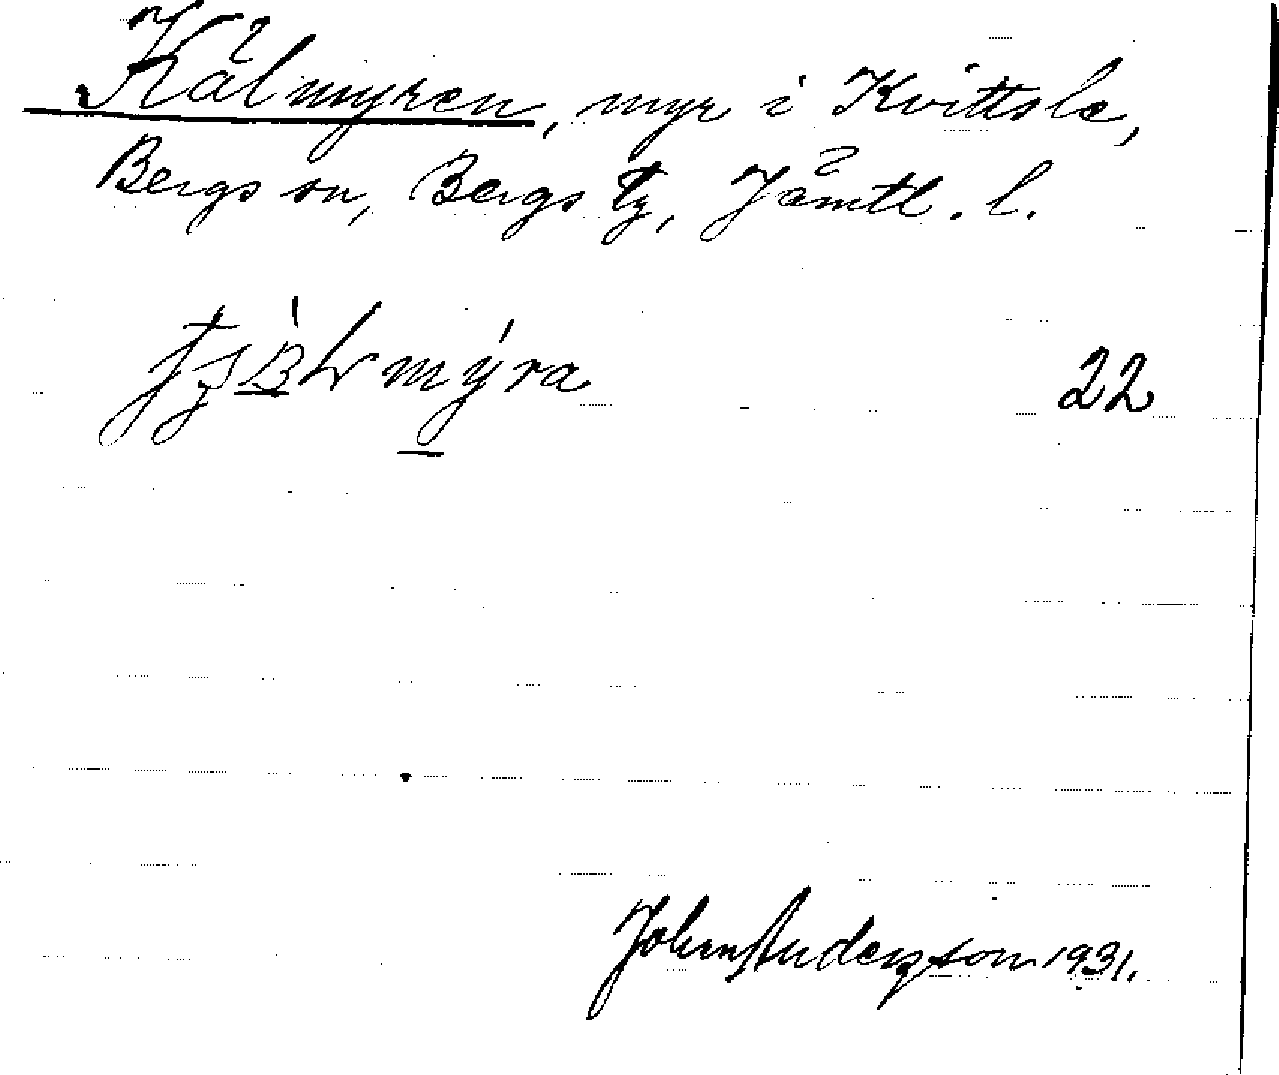 Kålmyren, myr i Kvittsle,
Bergs sn, Bergs tg, Jämtl. l.
22
John Anderzson 1931.